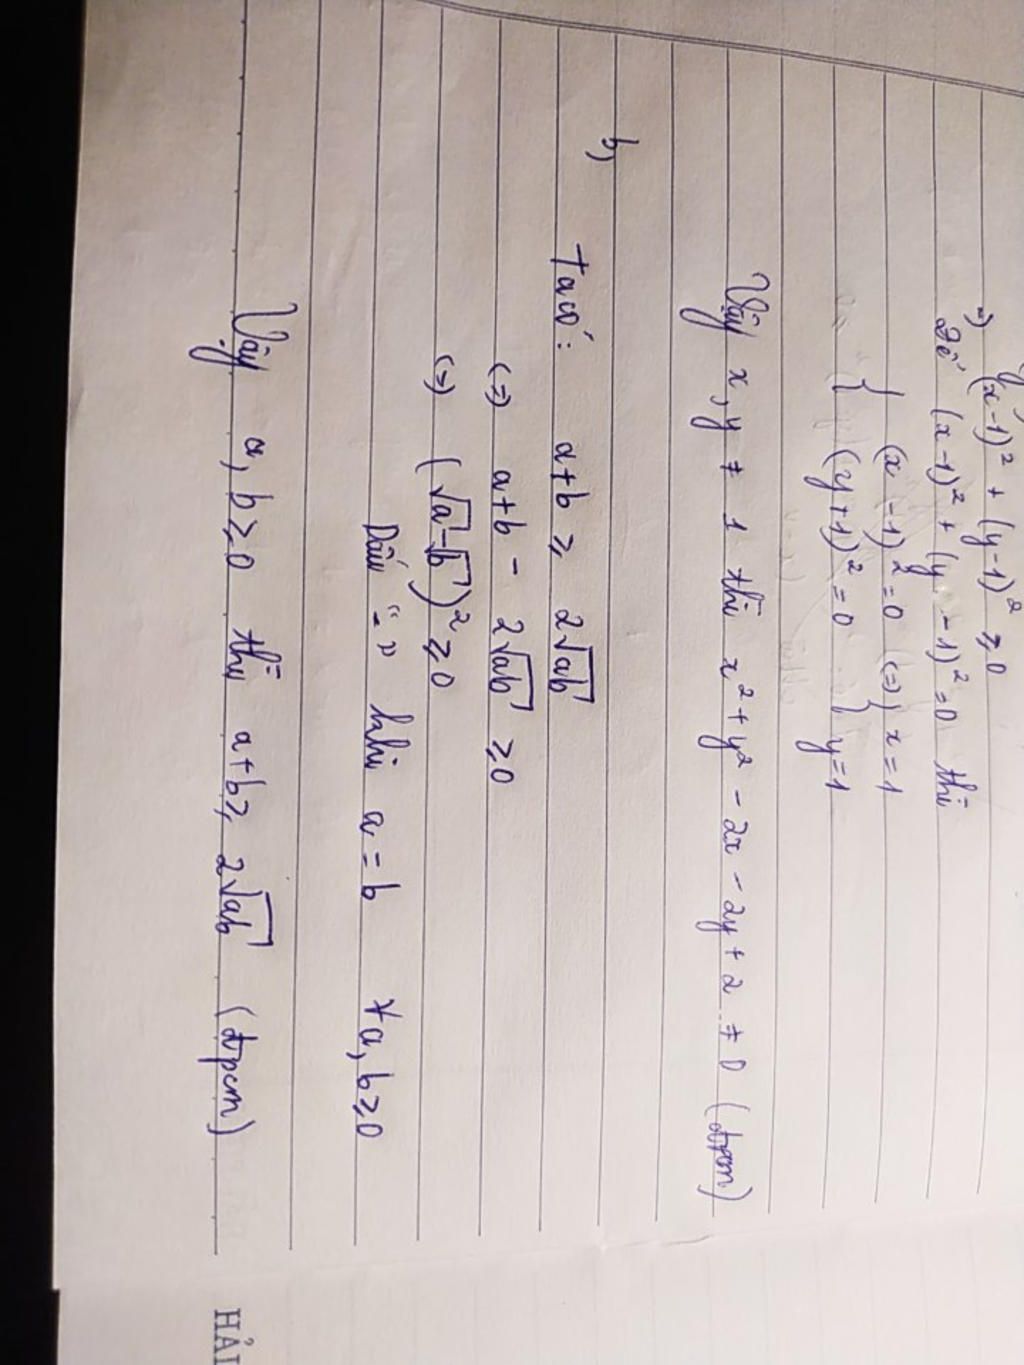 =) (x-1)² + (y-1)² ≥ 0
Để (x-1)² + (y-1)² = 0 thì
{ (x-1)² = 0 (=) { x = 1
{ (y+1)² = 0 { y = 1
Vậy x, y ≠ 1 thì x² + y² - 2x - 2y + 2 ≠ 0 (đpcm)
b,
Ta có: a+b ≥ 2√ab
(=) a+b - 2√ab ≥ 0
(=) (√a - √b)² ≥ 0
Dấu "=" khi a = b ∀a, b ≥ 0
Vậy a, b ≥ 0 thì a+b ≥ 2√ab (đpcm)
HẢI